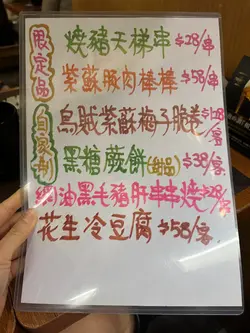 限定品
自家制
燒豬天梯串 $28/串
紫蘇豚肉棒棒 $58/串
烏賊紫蘇梅子脆卷
黑糖蕨餅(甜品) $38/客
網油黑毛豬肝串串燒 $28/客
花生冷豆腐 $58/客